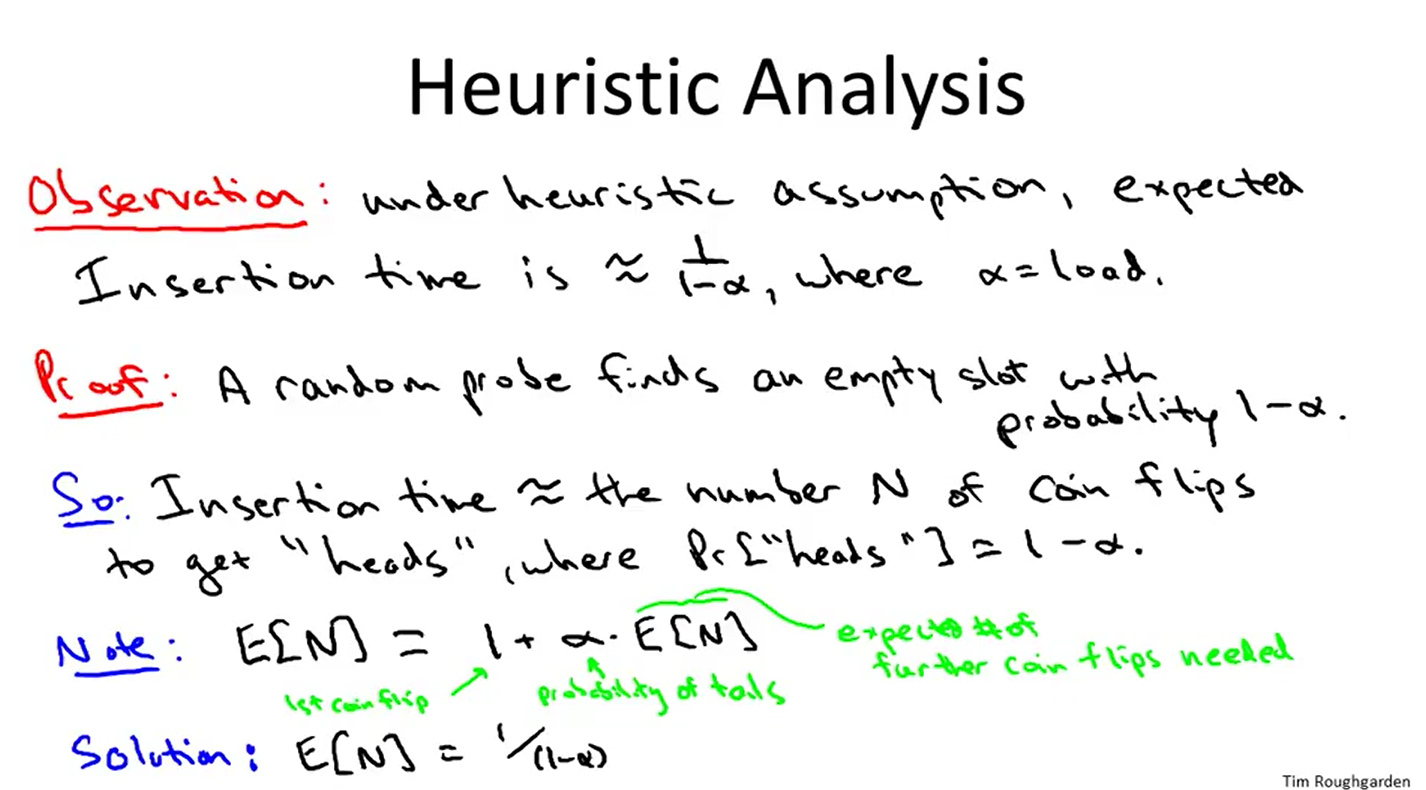 Heuristic Analysis
Observation: under heuristic assumption, expected
Insertion time is ≈ 1/(1-α), where α = load.
Proof: A random probe finds an empty slot with
probability 1-α.
So: Insertion time ≈ the number N of coin flips
to get "heads", where Pr["heads"] = 1-α.
Note: E[N] = 1 + α· E[N]
expected # of
further coin flips needed
1st coin flip
probability of tails
Solution: E[N] = 1/(1-α)
Tim Roughgarden